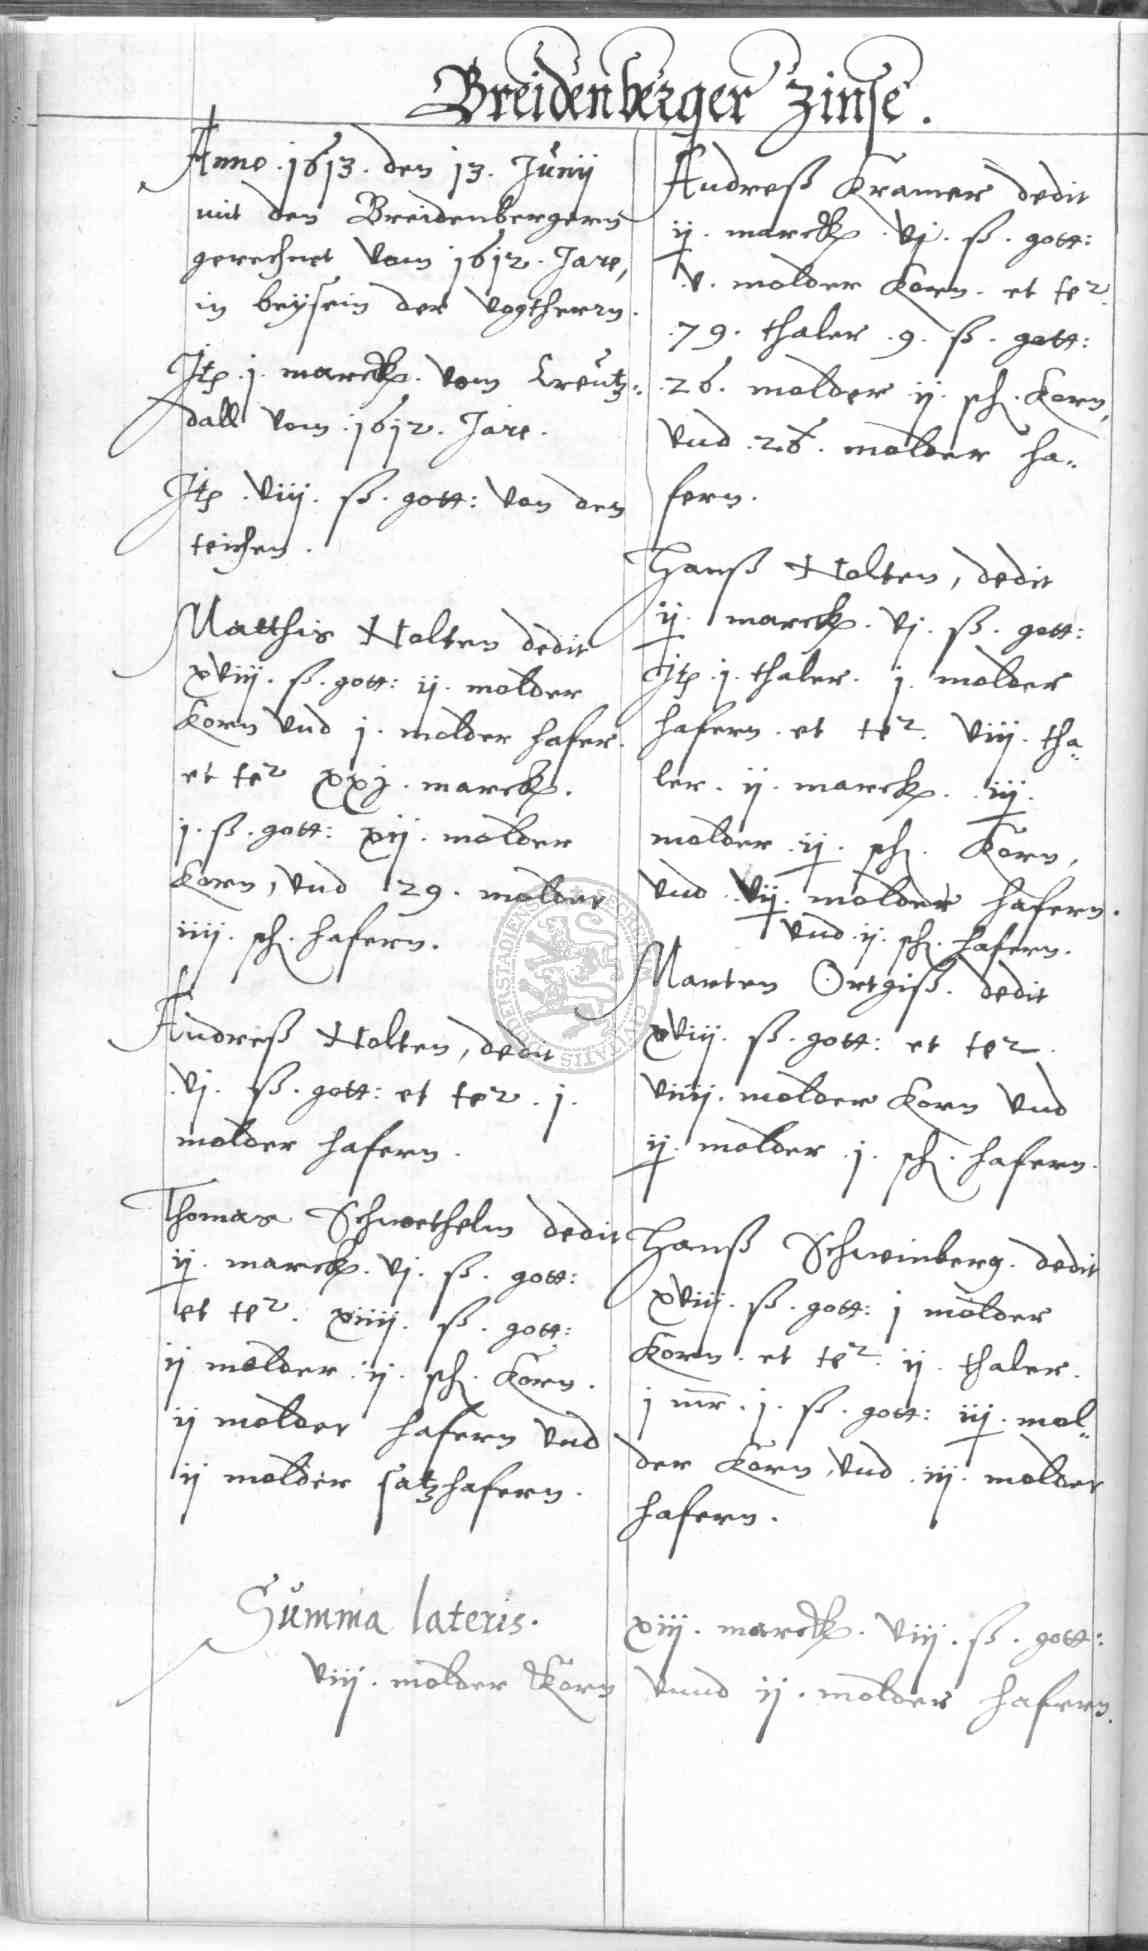 Breidenberger Zinse.
Anno .1613. den 13. Junij
mit den Breidenbergern
gerechnet vom 1612. Jare,
in beysein der Vogtherrn.
Itp .j. marck. vom Creutz=
dall vom .1612. Jare.
Itp .viij. ß. gott: von den
teichen.
Matthis Nolten dedit
xviij. ß. gott: ij. molder
Korn vnd j. molder hafer.
et ter xxj. marck.
j. ß. gott: xij. molder
Korn, vnd 29. molder
iiij. sch. hafern.
Andreß Nolten, dedit
.vj. ß. gott: et ter .j.
molder hafern.
Thomas Schwethelm dedit
ij. marck. vj. ß. gott:
et ter. xiiij. ß. gott:
ij molder .ij. sch. Korn.
ij molder hafern vnd
ij molder satzhafern.
Andreß Kramer dedit
ij. marck .vj. ß. gott:
.v. molder Korn. et ter.
.79. thaler .9. ß. gott:
.26. molder ij. sch. Korn,
vnd .26. molder ha=
fern.
Hanß Nolten, dedit
ij. marck. vj. ß. gott:
Itp .j. thaler. j. molder
hafern. et ter. viij. tha=
ler. ij. marck. .iij.
molder .ij. sch. Korn,
vnd .vij. molder hafern.
vnd .ij. sch. hafern.
Marten Ortgiß. dedit
xviij. ß. gott: et ter.
viiij. molder Korn vnd
ij. molder .j. sch. hafern.
Hanß Schweinberg. dedit
xviij. ß. gott: j molder
Korn. et ter. ij. thaler.
j mr. j. ß. gott: iij. mol=
der Korn, vnd .iij. molder
hafern.
Summa lateris. xiij. marck. viij. ß. gott:
viij. molder Korn vnnd ij. molder hafern.